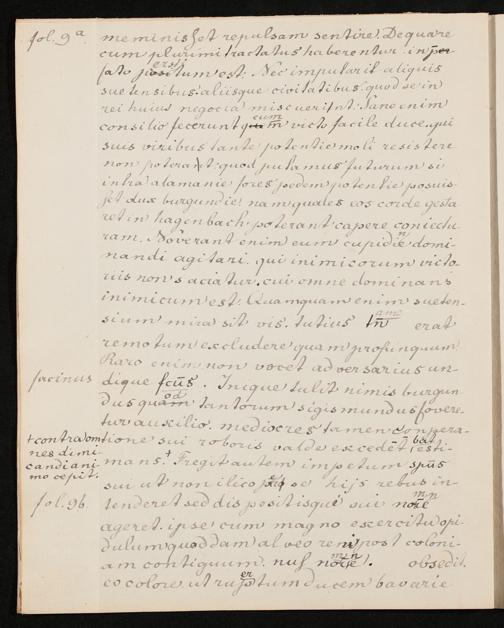 fol. 9a.
meminisset repulsam sentire. De qua re
cum plurimi tractatus haberentur in
fato positum est. Nec impularit aliquis
suetensibus aliisque civitatibus quod se in
rei huius negocia miscuerint. Sane enim
consilio fecerunt cum victo facile duce qui
suis viribus tante potentie moli resistere
non poterant quod putamus futurum si
intra alamanie fores pedem potentie posuis-
set dux burgundie nam quales eos corde gesta
ret in hagenbach poterant capere coniectu
ram. Noverant enim eum cupidine domi-
nandi agitari qui inimicorum victo
riis non saciatur cui omne dominans
inimicum est. Quamquam enim sueten-
sium mira sit vis tutius erat
remotum excludere quam propinquum
Raro enim non vocet adversarius un-
facinus
dique. Inique tulit nimis burgun
dus quod tantorum sigismundus fovere-
tur auxilio mediocres tamen compera-
+ contra om
nes dimi-
candi ani
mo cepit.
tione sui roboris valde excedebat esti-
mans. + Fregit autem impetum spūs
sui ut non ilico se hijs rebus in-
fol. 9b.
tenderet sed dispositisque sui
ageret ipse cum magno exercitu opi-
dulum quoddam al veo reni post coloni-
am contiguum. obsedit.
eo colore ut ducem bavarie